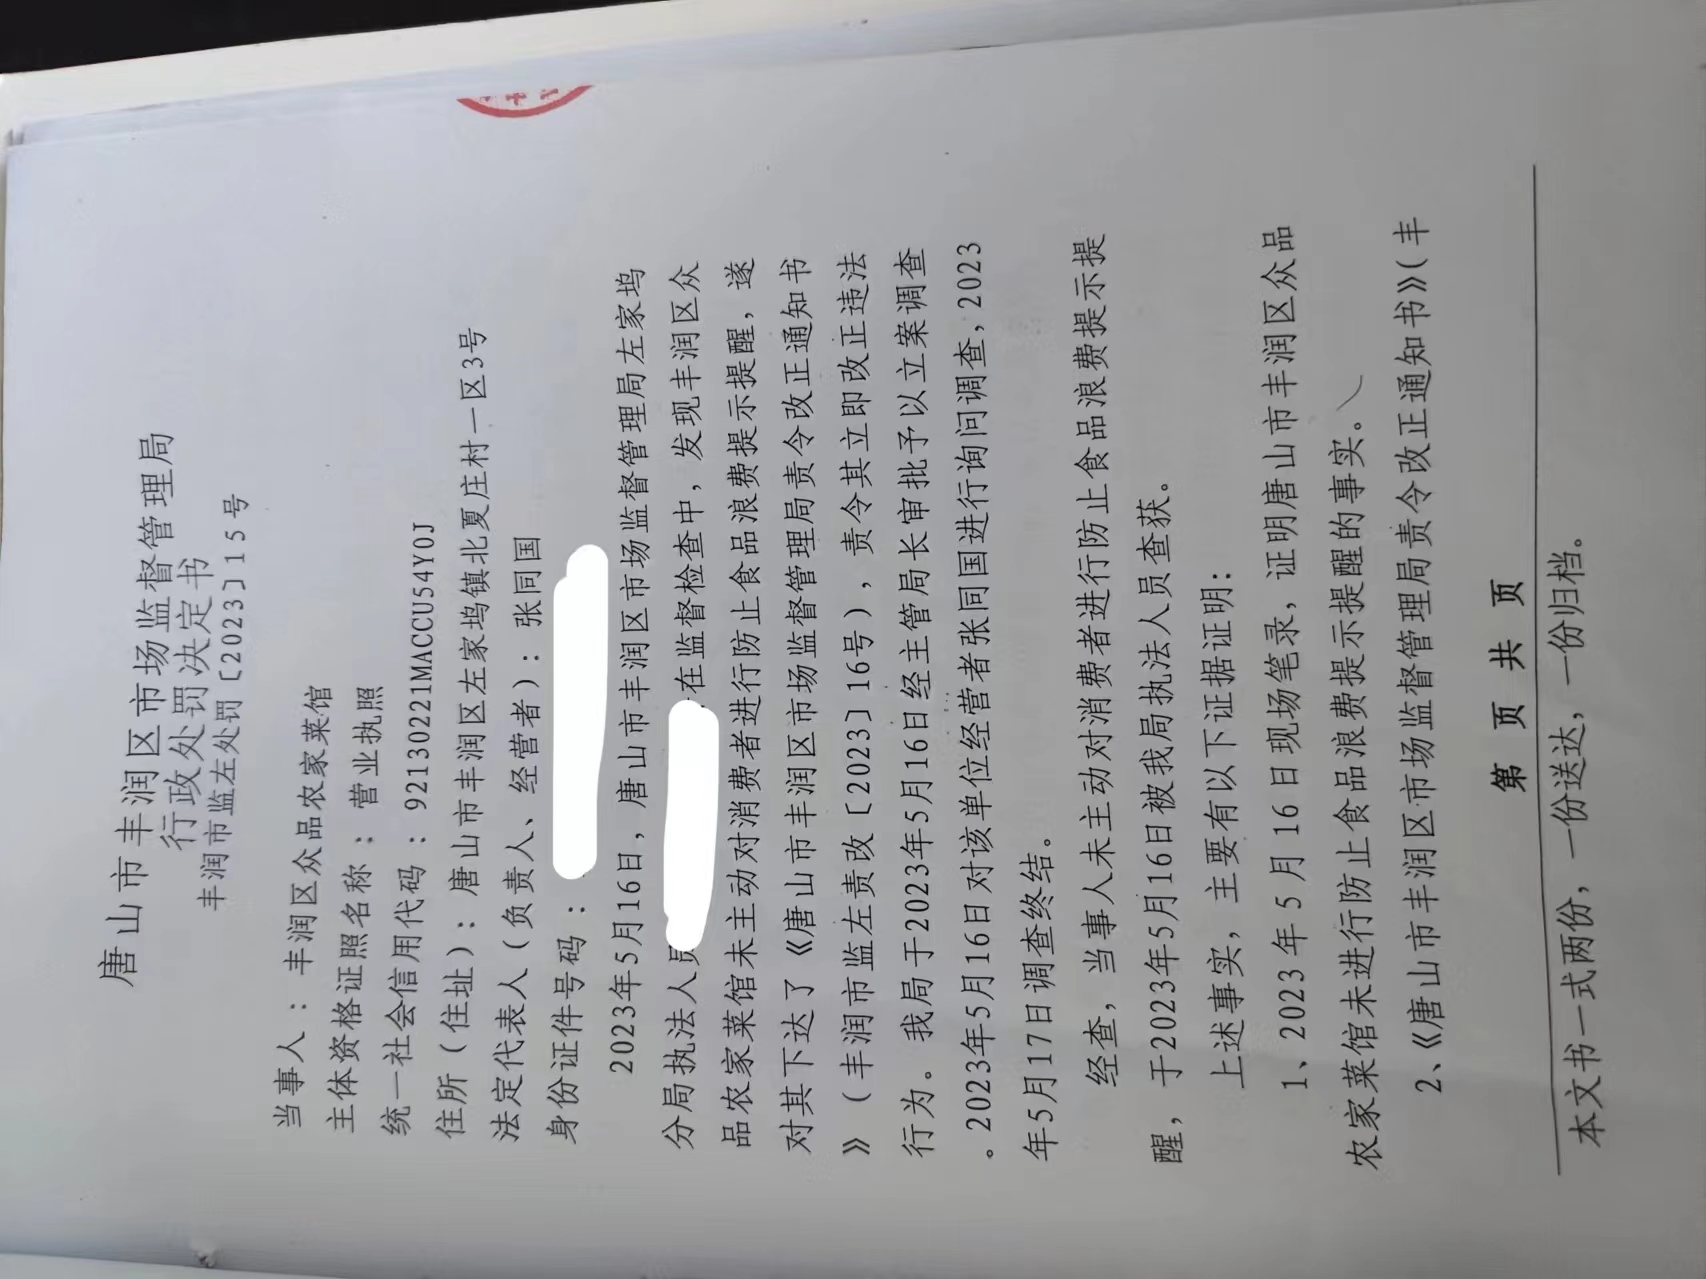 唐山市丰润区市场监督管理局
行政处罚决定书
丰润市监左处罚〔2023〕15号
当事人：丰润区众品农家菜馆
主体资格证照名称：营业执照
统一社会信用代码：92130221MACCU54Y0J
住所（住址）：唐山市丰润区左家坞镇北夏庄村一区3号
法定代表人（负责人、经营者）：张同国
身份证件号码：
2023年5月16日，唐山市丰润区市场监督管理局左家坞
分局执法人员 在监督检查中，发现丰润区众
品农家菜馆未主动对消费者进行防止食品浪费提示提醒，遂
对其下达了《唐山市丰润区市场监督管理局责令改正通知书
》（丰润市监左责改〔2023〕16号），责令其立即改正违法
行为。我局于2023年5月16日经主管局长审批予以立案调查
。2023年5月16日对该单位经营者张同国进行询问调查，2023
年5月17日调查终结。
经查，当事人未主动对消费者进行防止食品浪费提示提
醒，于2023年5月16日被我局执法人员查获。
上述事实，主要有以下证据证明：
1、2023年5月16日现场笔录，证明唐山市丰润区众品
农家菜馆未进行防止食品浪费提示提醒的事实。
2、《唐山市丰润区市场监督管理局责令改正通知书》（丰
第 页 共 页
本文书一式两份，一份送达，一份归档。